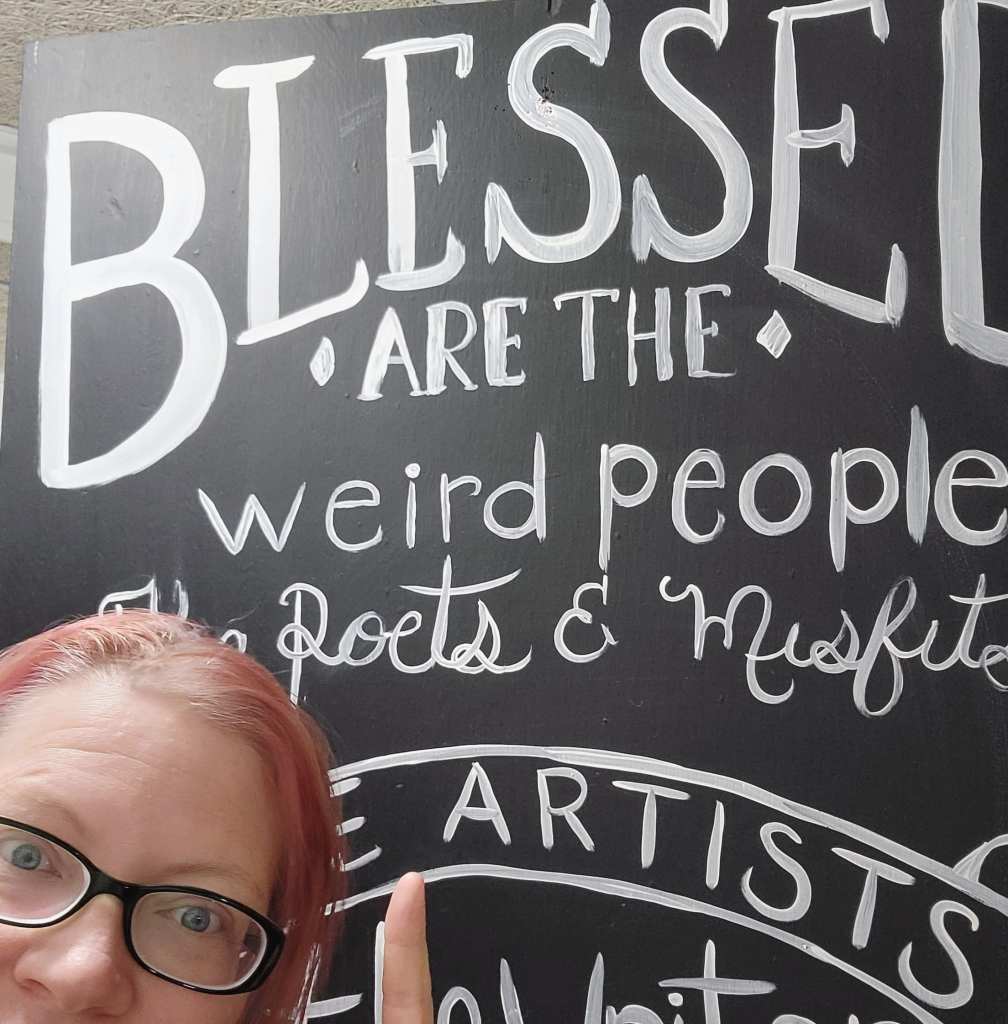 BLESSED
ARE THE
weird people
The Poets & Misfits
E ARTISTS